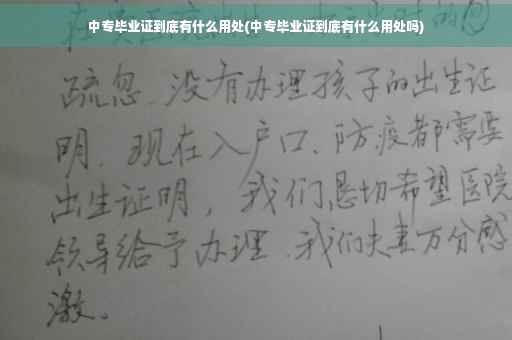 中专毕业证到底有什么用处(中专毕业证到底有什么用处吗)
疏忽、没有办理孩子的出生证
明、现在入户口、防疫都需要
出生证明，我们恳切希望医院
领导给予办理、我们夫妻万分感
激。